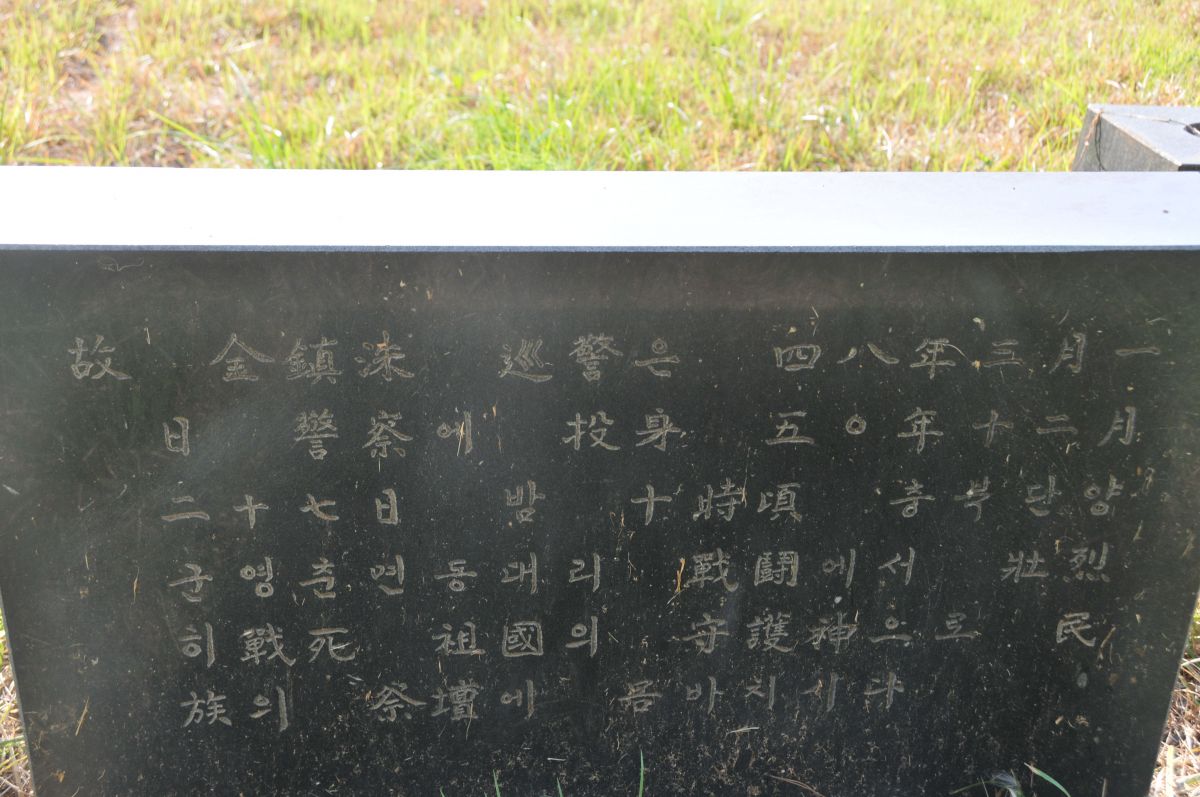 故 金鎮洙 巡警은 四八年三月一
日 警察에 投身 五〇年十二月
二十七日 밤 十時頃 충북단양
군영춘면동대리 戰鬪에서 壯烈
히戰死 祖國의 守護神으로 民
族의 祭壇에 몸바치시다